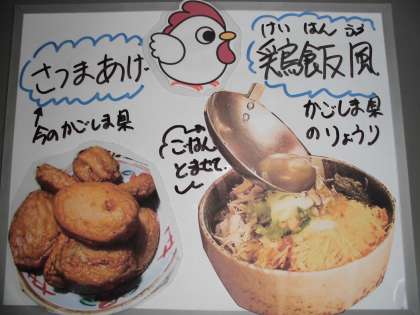 さつまあげ
今のかごしま県
けいはんふう
鶏飯風
かごしま県
のりょうり
ごはん
とまぜて